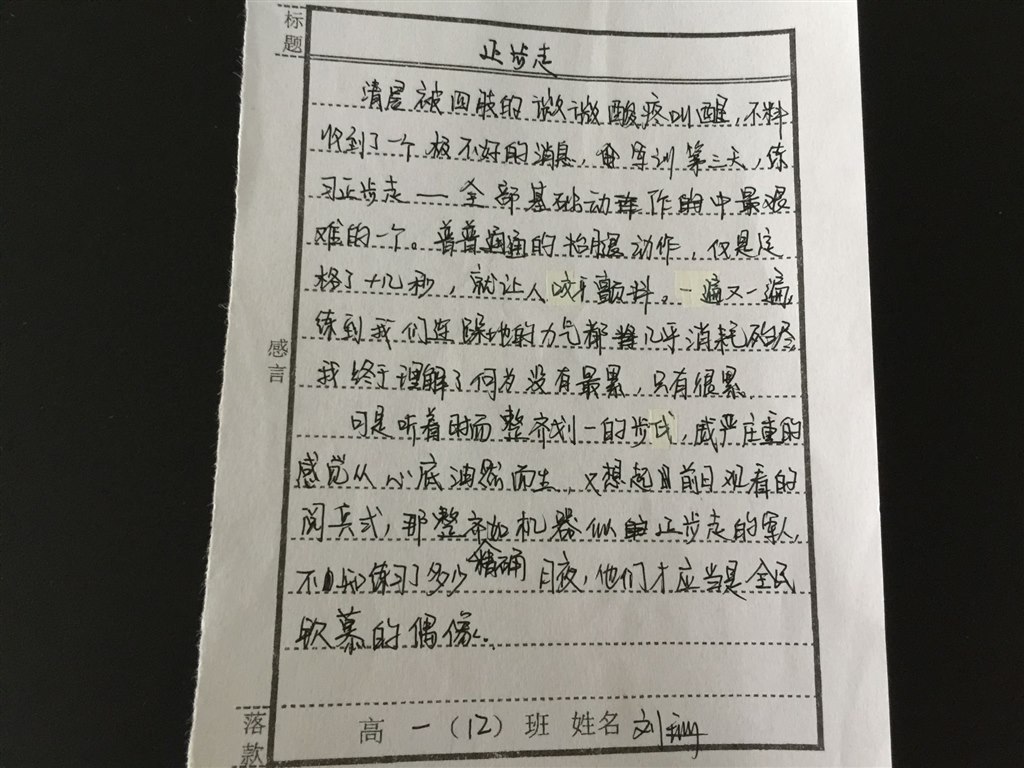 标题
正步走
清晨被四肢的微微酸疼叫醒,不料
收到了一个极不好的消息,军训第三天,练
习正步走——全部基础动作的中最艰
难的一个。普普通通的抬腿动作,仅是定
格了十几秒,就让人咬牙颤抖。一遍又一遍,
练到我们连跺地的力气都几乎消耗殆尽
我终于理解了何为没有最累,只有很累
感言
可是听着时而整齐划一的步伐,威严庄重的
感觉从心底油然而生,又想起目前日观看的
阅兵式,那整齐如机器似正步走的军人,
精确
不知练习了多少日夜,他们才应当是全民
钦慕的偶像。
落款
高一(12)班 姓名 刘